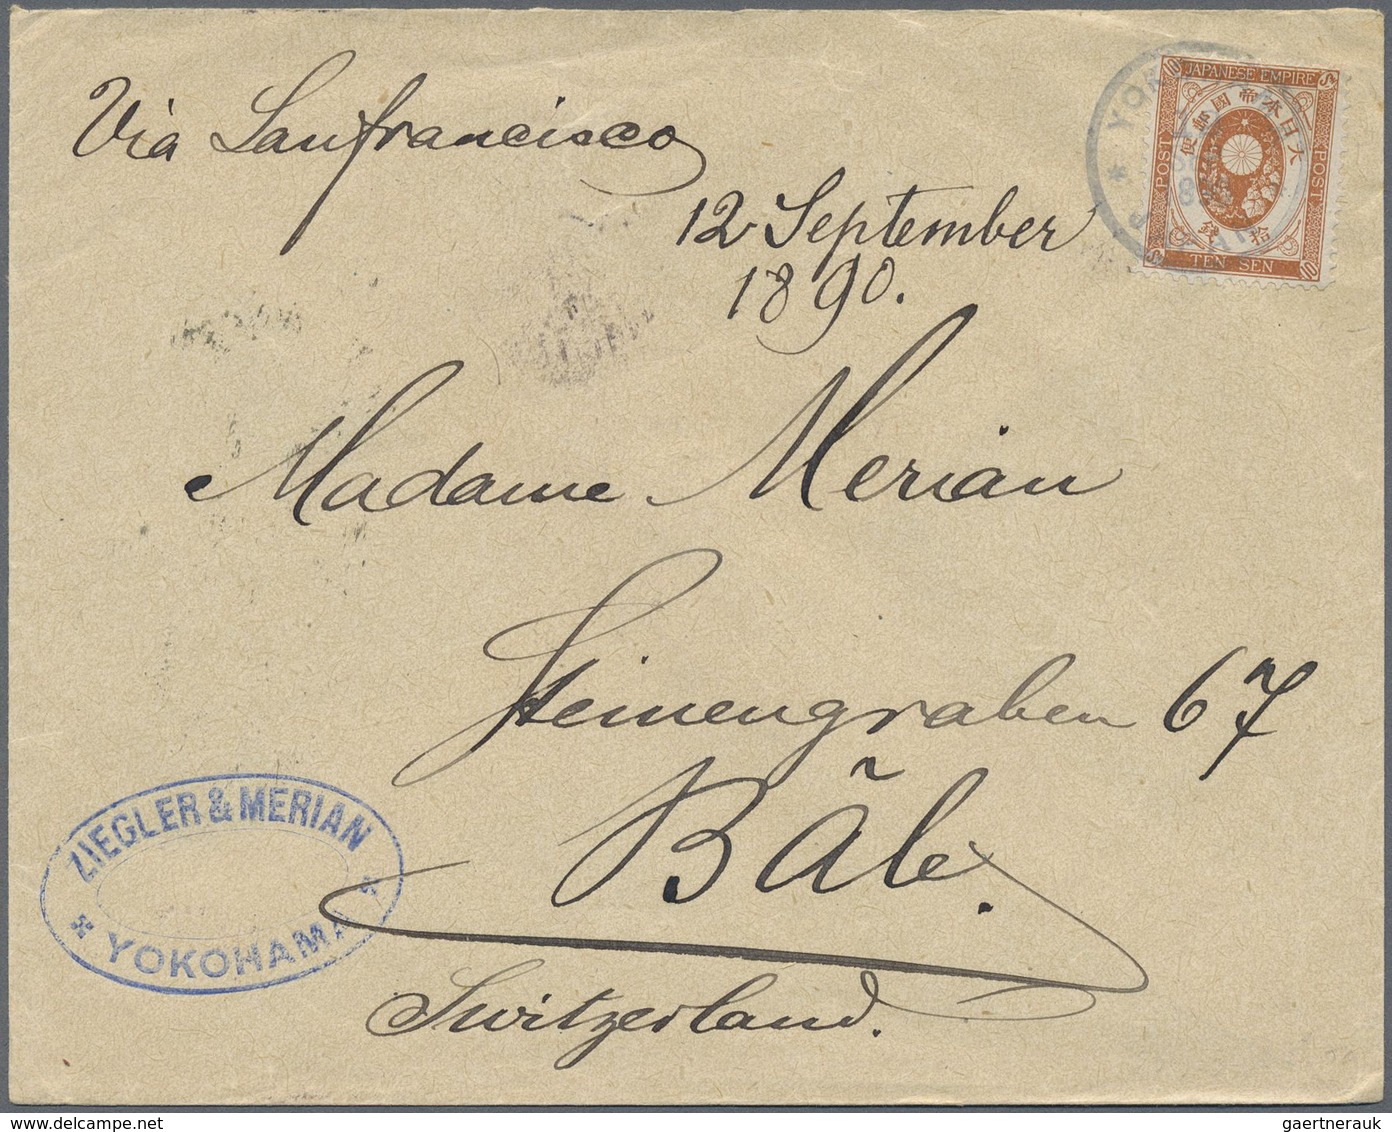 Via Sanfrancisco
12 September
1890.
Madame Merian
Steinengraben 67
Bâle.
Switzerland.
ZIEGLER & MERIAN
YOKOHAMA
JAPANESE EMPIRE
10 Sn
大日本帝國郵便
POST
POST
拾錢
Sn TEN SEN 10
gaertnerauk